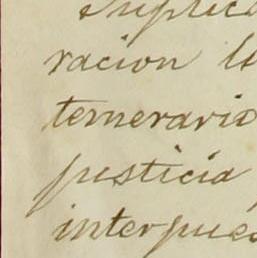 suplica
racion l
temerario
justicia
interpues